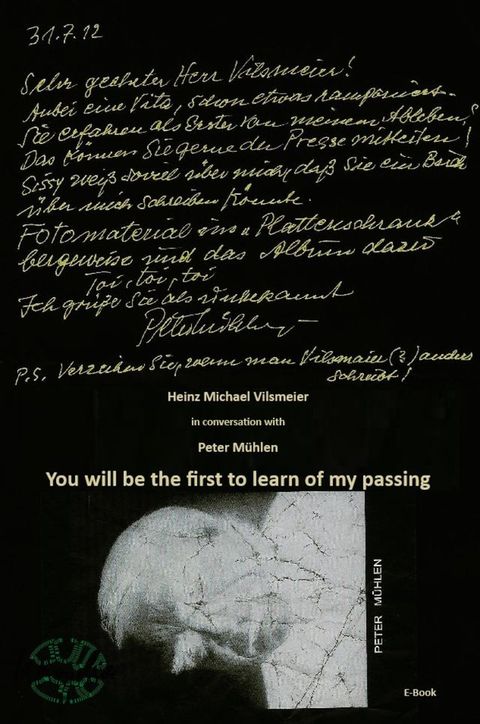 31.7.12
Sehr geehrter Herr Vilsmeier!
Anbei eine Vita, schon etwas ramponiert.
Sie erfahren als Erster von meinem Ableben.
Das können Sie gerne der Presse mitteilen!
Sissy weiß soviel über mich, daß Sie ein Buch
über mich schreiben könnte.
Fotomaterial ins „Plattenschrank“
bergeweise und das Album dazu
Toi, toi, toi
Ich grüße Sie als unbekannt
P.S. Verzeihen Sie, wenn man Vilsmaier (?) anders
schreibt!
Heinz Michael Vilsmeier
in conversation with
Peter Mühlen
You will be the first to learn of my passing
PETER MÜHLEN
E-Book